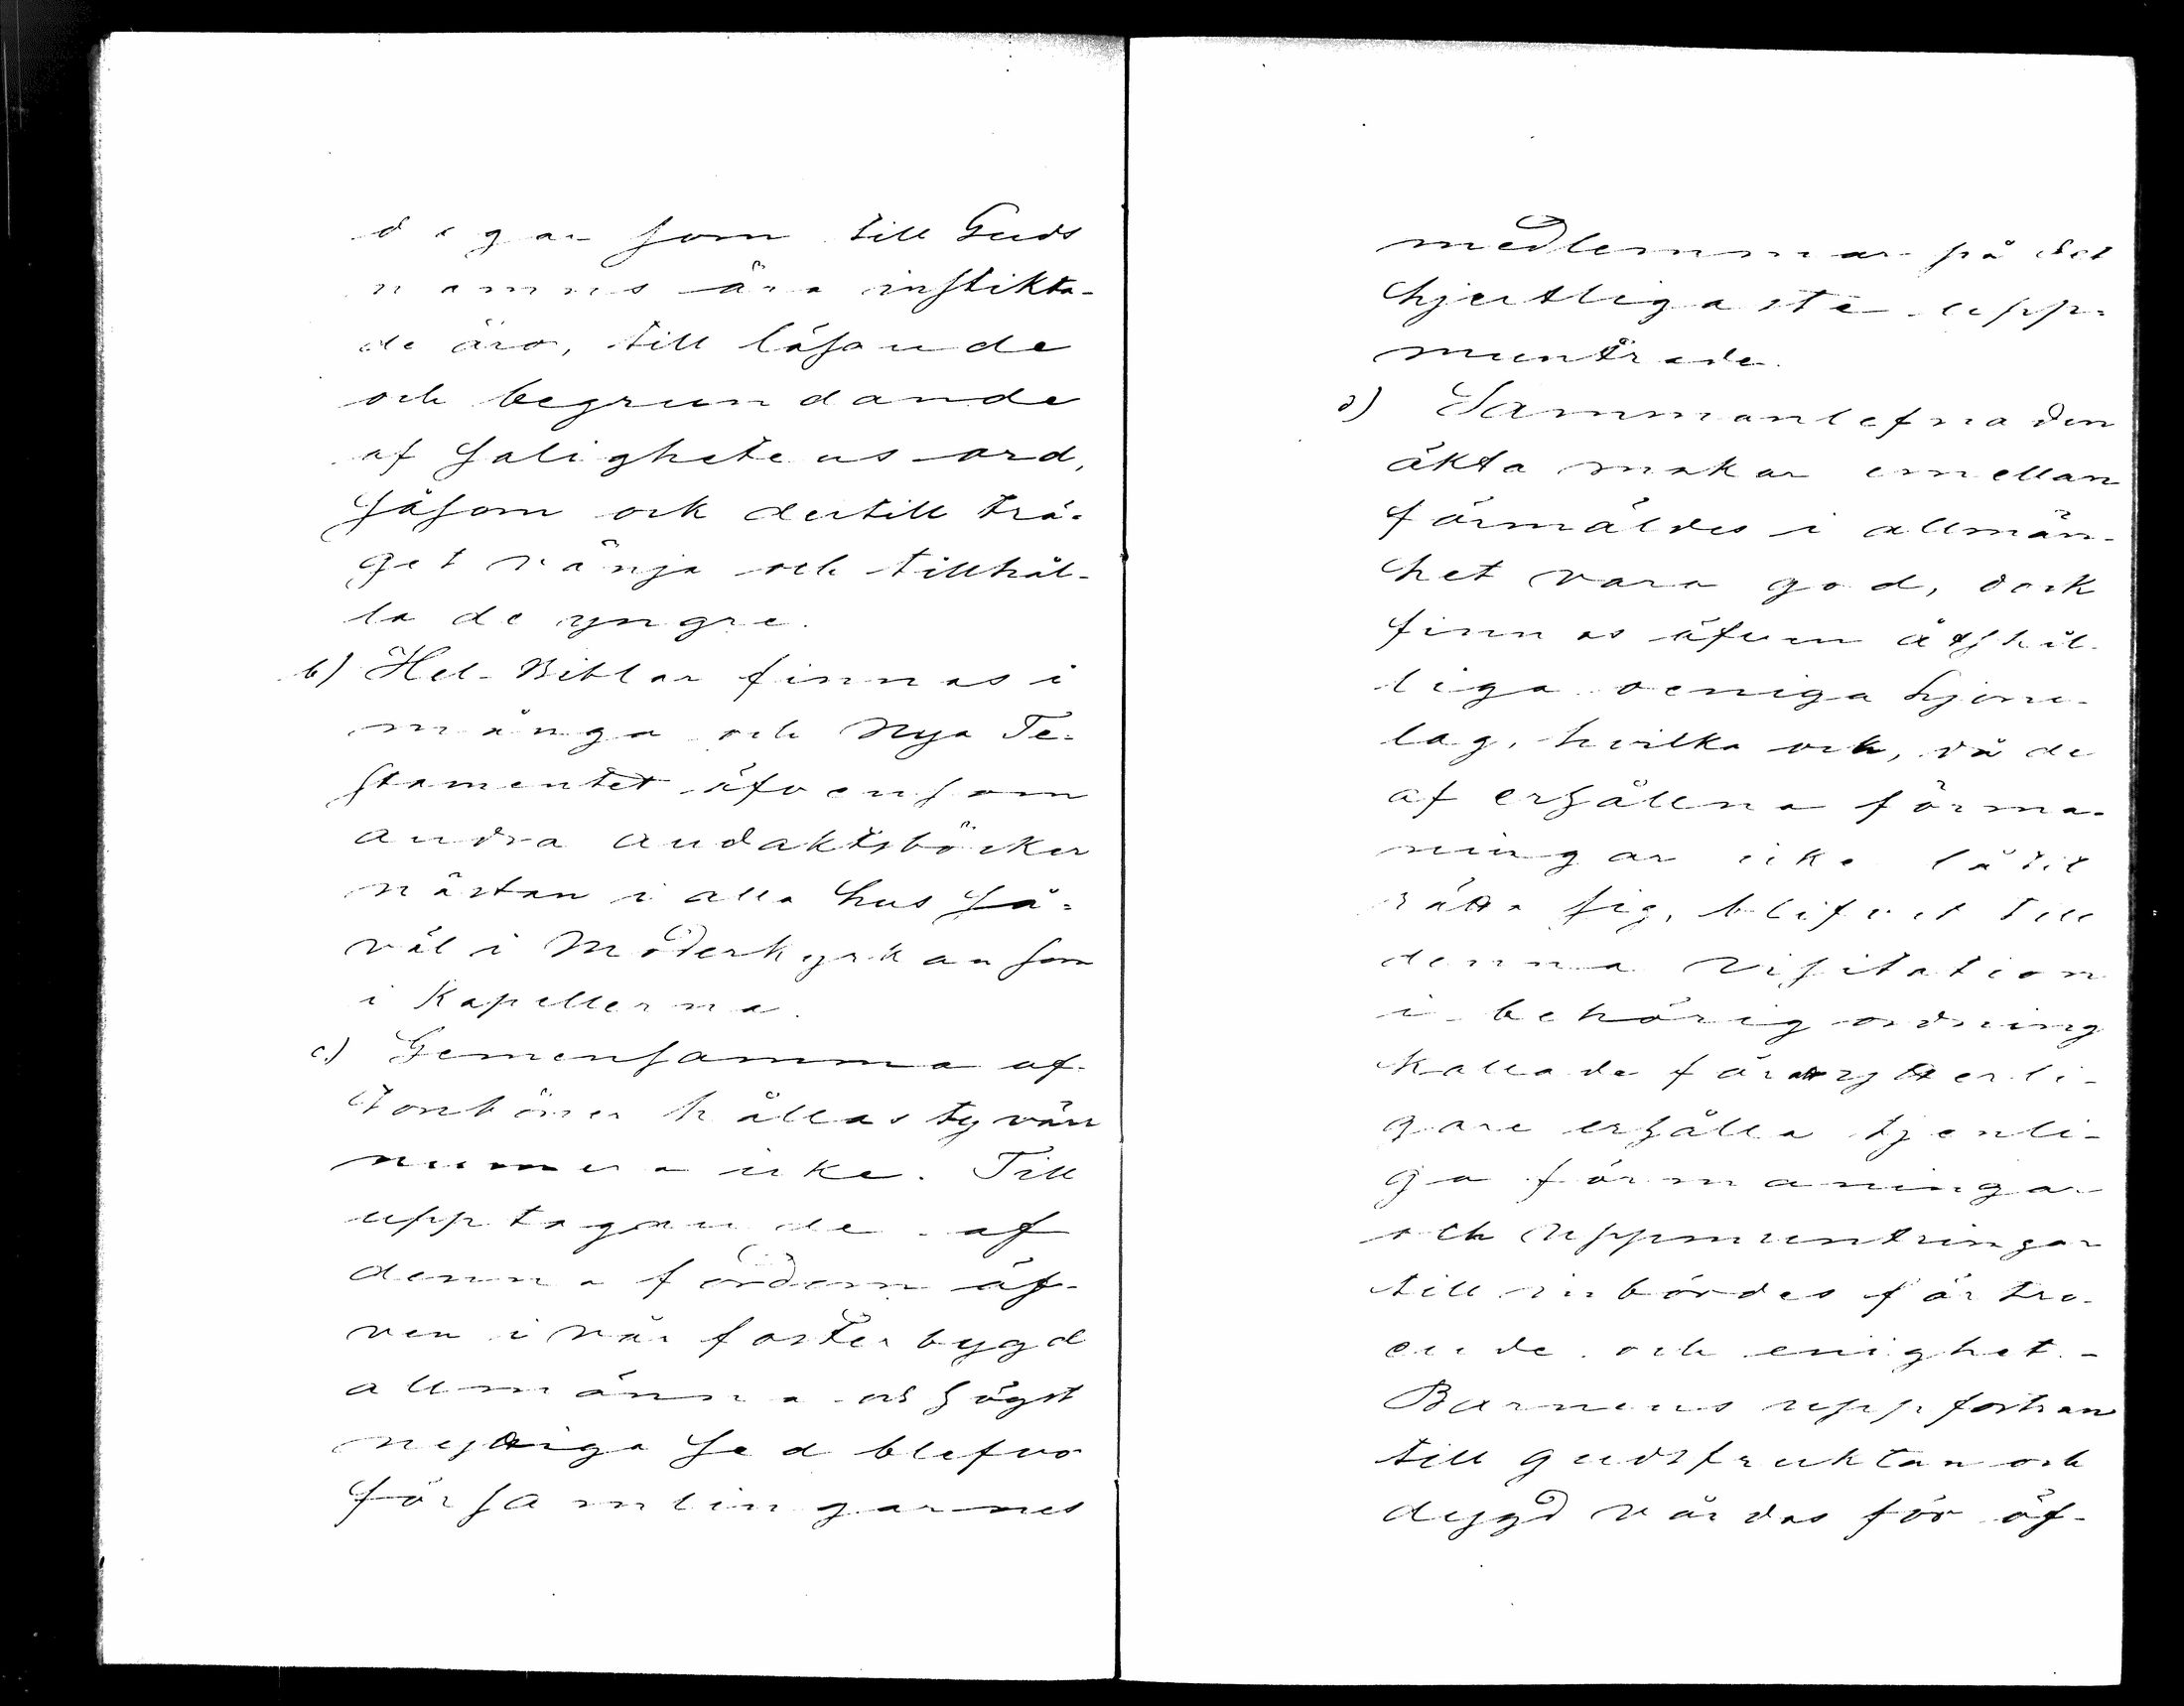 dagar som till Guds
namns ära instikta-
de äro, till läsande
och begrundande
af salighetens ord,
såsom ock dertill trä-
get vänja och tillhål-
la de yngre.
b) Hel-Biblar finnas i
många och Nya Te-
stamentet äfvensom
andra andaktsböcker
nästan i alla hus så-
väl i Moderkyrkan som
i Kapellerna.
c.) Gemensamma af-
tonböner hållas tyvärr
numera icke. Till
upptagande af
denna fordom äf-
ven i vår fosterbygd
allmänna och högst
nyttiga sed blefvo
församlingarnes
medlemmar på det
hjertligaste upp-
muntrade.
d) Sammanlefnaden
äkta makar emellan
förmäldes i allmän-
het vara god, dock
finnas äfven åtskil-
liga oeniga hjone-
lag, hvilka ock, då de
af erhållna förma-
ningar icke låtit
rätta sig, blifvit till
denna visitation
i behörig ordning
kallade för att ytterli-
gare erhålla tjenli-
ga förmaningar
och uppmuntringar
till inbördes förtro-
ende och enighet. -
Barnens uppfostran
till gudsfruktan och
dygd vårdas för öf-